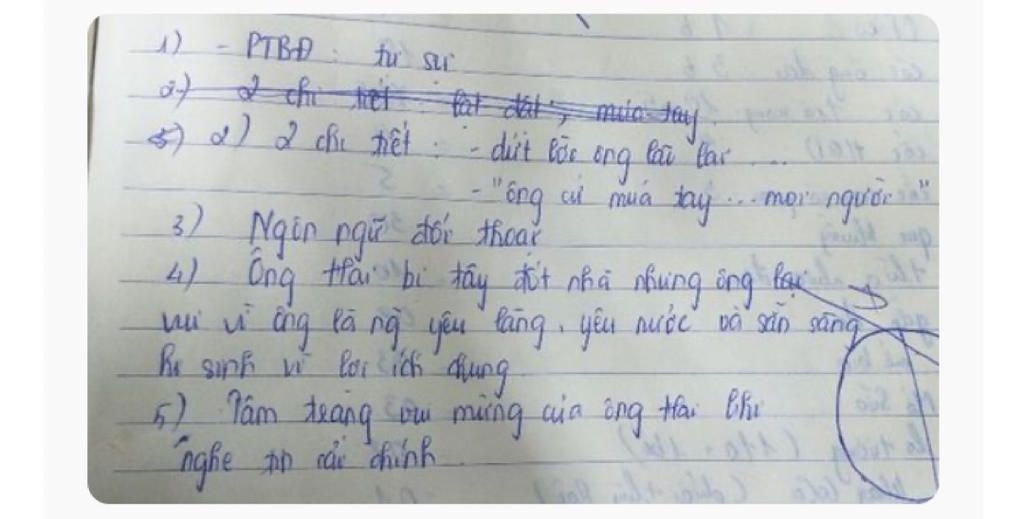 1) - PTBĐ : tự sự
2) 2 chi tiết : lật đật ; múa tay
5) 2) 2 chi tiết : - dứt lời ông lão lại ...
- "ông cứ múa tay ... mọi người"
3) Ngôn ngữ đối thoại
4) Ông Hai bị tây đốt nhà nhưng ông lại
vui vì ông là ng yêu làng, yêu nước và sẵn sàng
hi sinh vì lợi ích chung
5) Tâm trạng vui mừng của ông Hai khi
nghe tin cải chính.